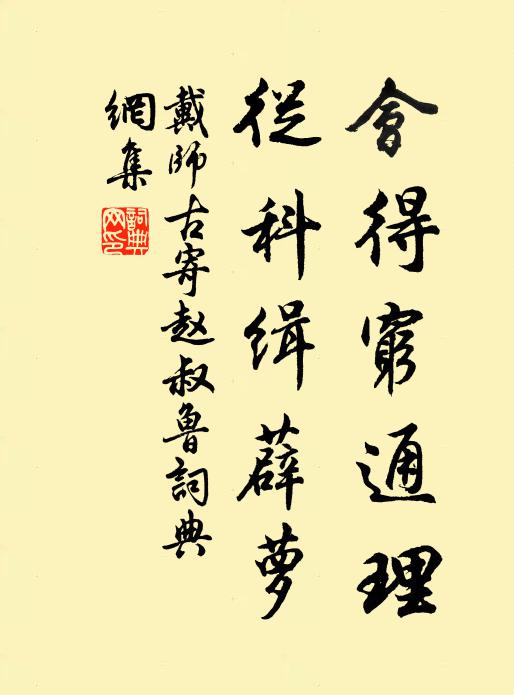 會得窮通理
從科缉薜萝
戴師古寄赵叔魯詞典
網集
詞典網印